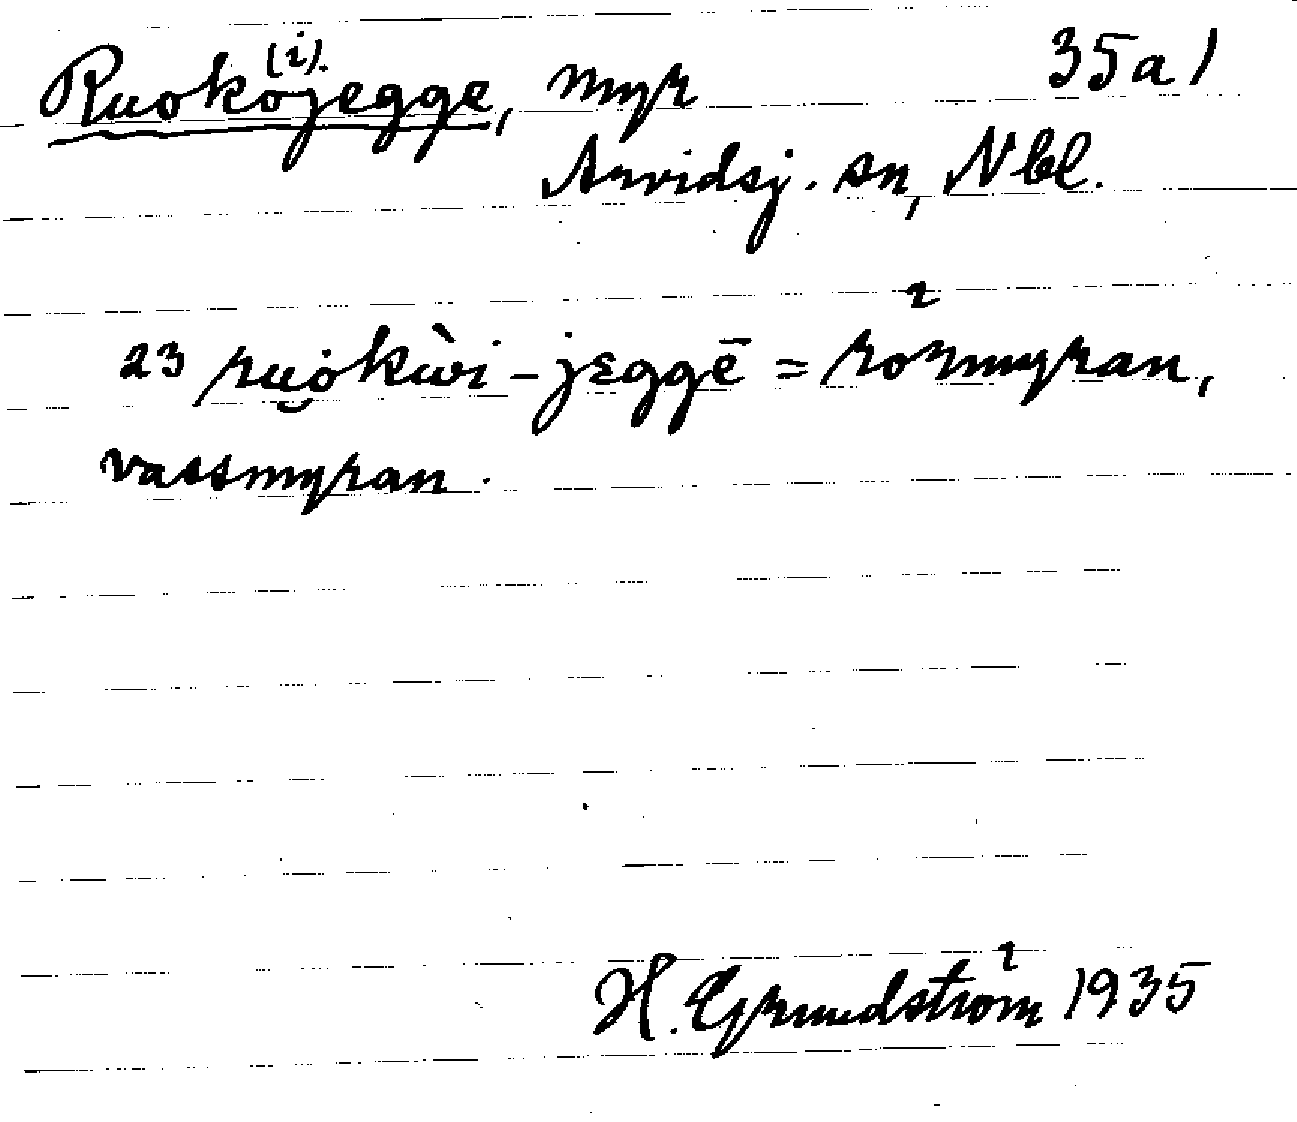 Ruoko(i)jegge, myr 35a)
Arvidsj. sn, Nbl.
23 ru̯ȯkẁi-jɛggē = rörmyran,
vassmyran.
H. Grundström 1935